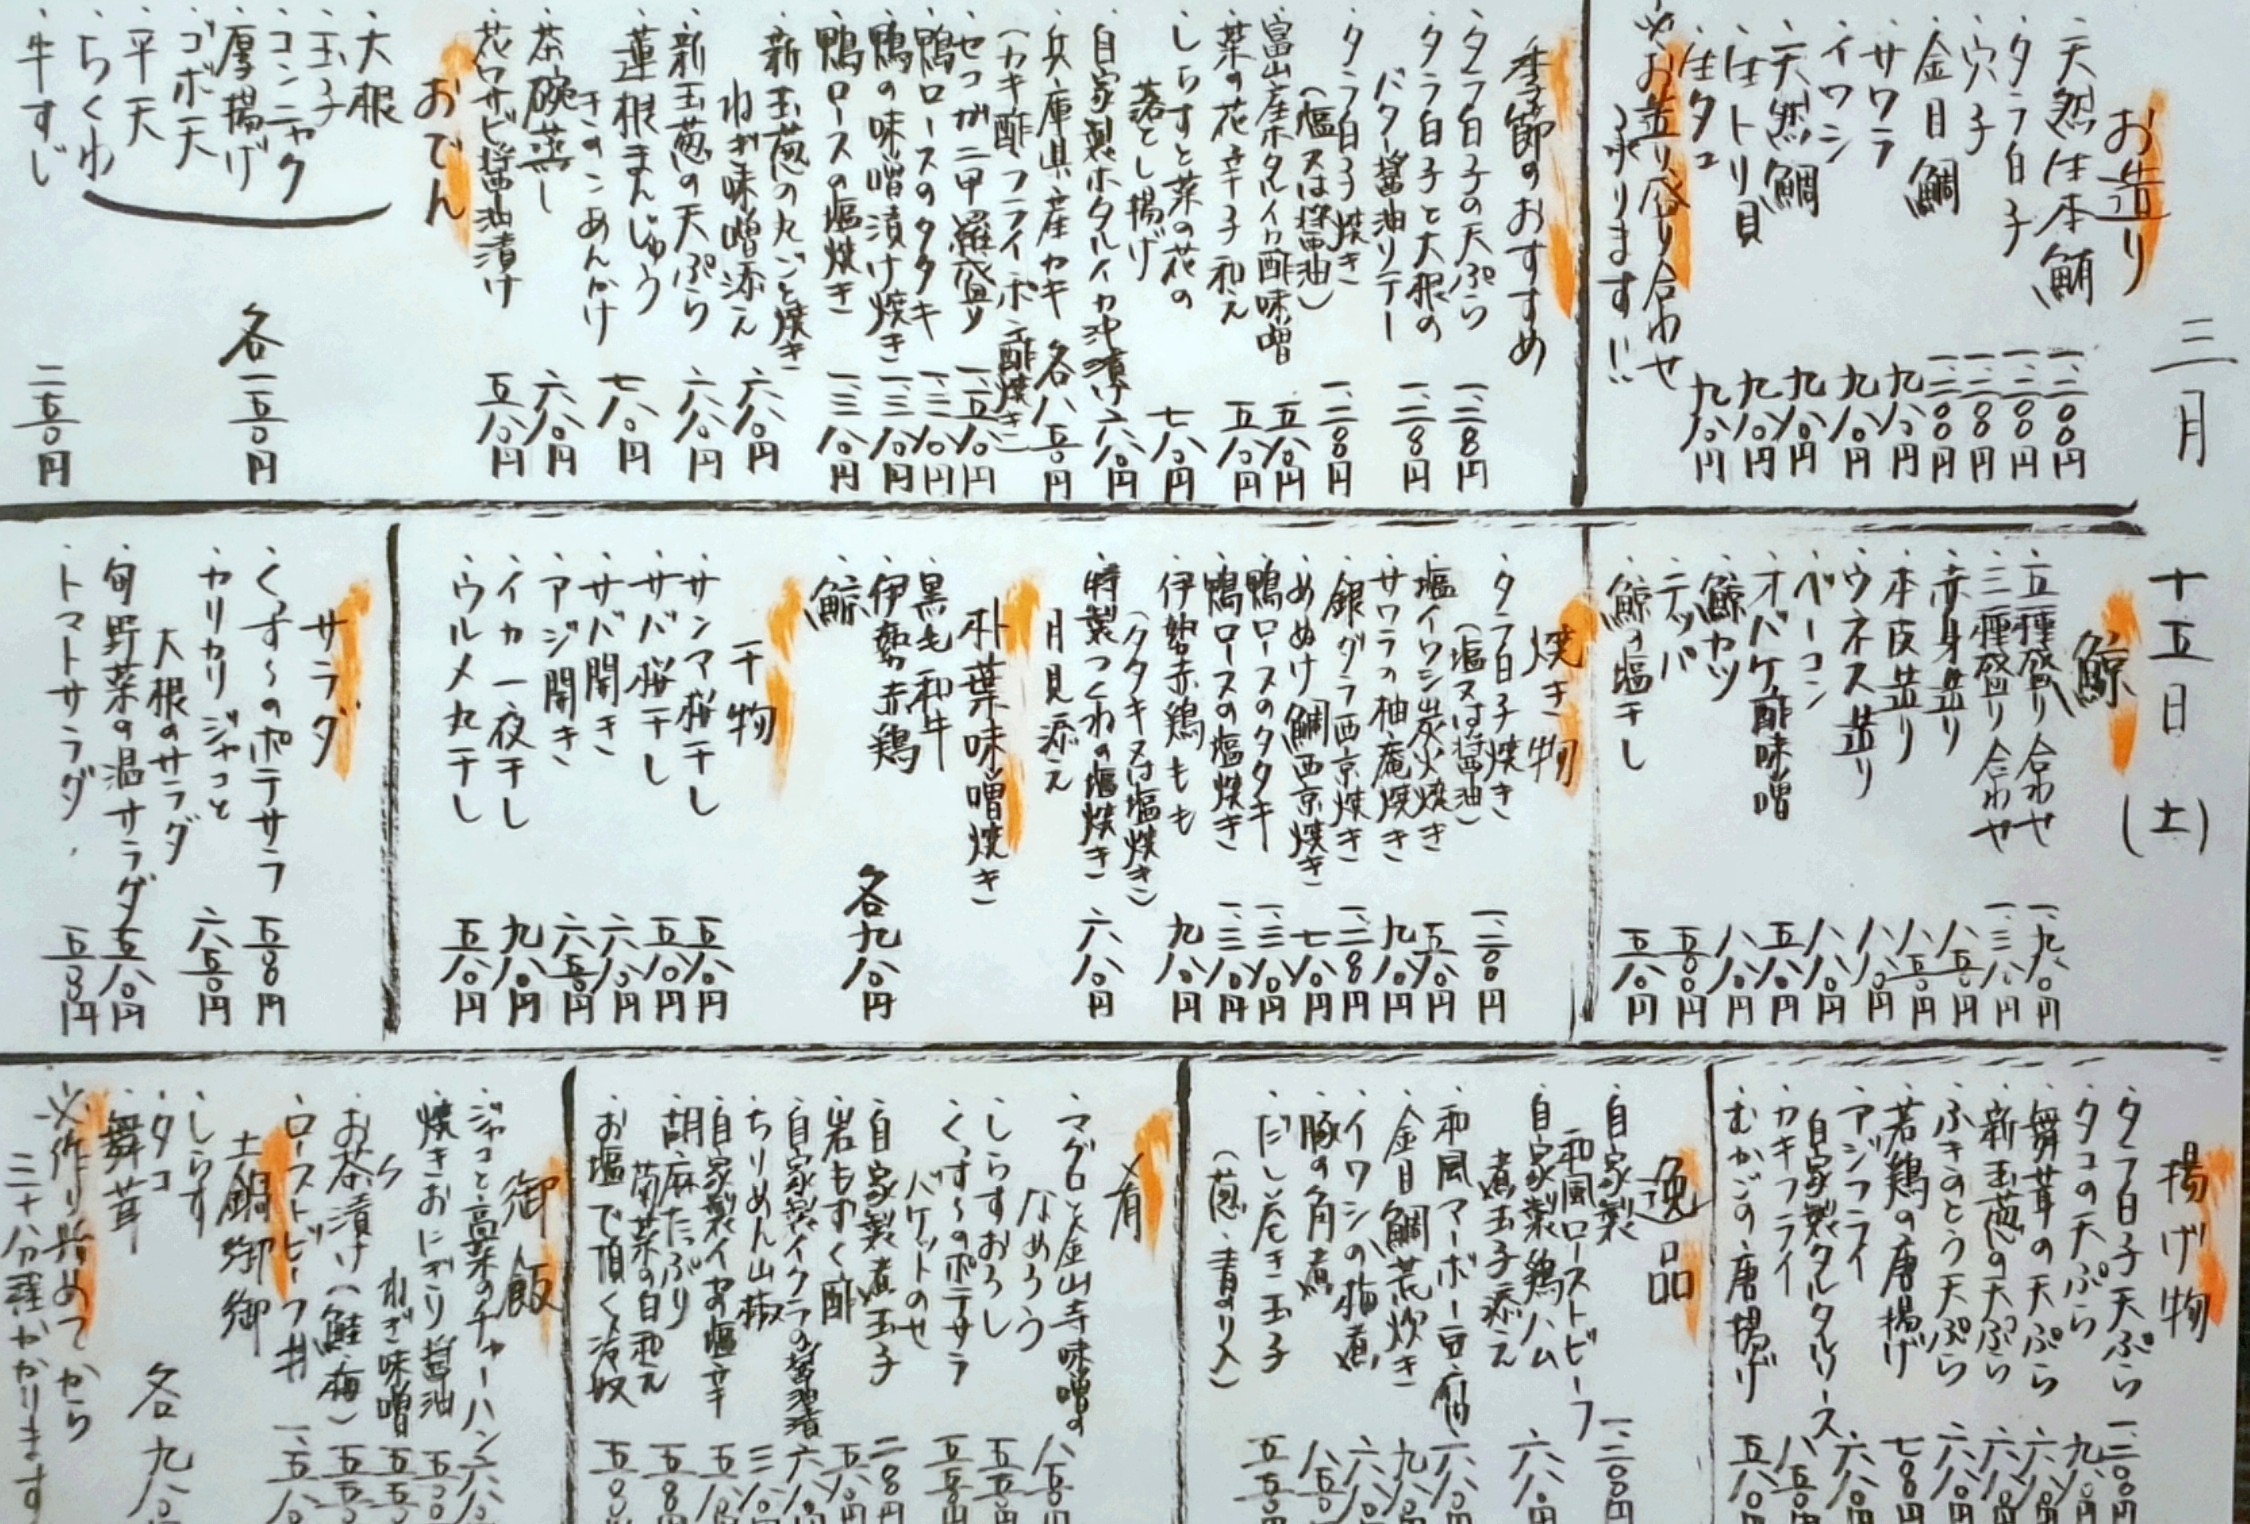 三月
十五日
(土)
お造り
・天然生本鮪 一、二〇〇円
・タラ白子 一、二〇〇円
・穴子 一、二〇〇円
・金目鯛 一、二〇〇円
・サワラ 九八〇円
・イワシ 九八〇円
・天然鯛 九八〇円
・生トリ貝 九八〇円
・生タコ 九八〇円
※お造り盛り合わせ
承ります!!
季節のおすすめ
・タラ白子の天ぷら 一、二〇〇円
・タラ白子と大根の
バター醤油ソテー 一、二〇〇円
・タラ白子焼き
(塩又は醤油) 一、二〇〇円
・富山産ホタルイカ酢味噌 五八〇円
・菜の花辛子和え 五八〇円
・しらすと菜の花の
落とし揚げ 七八〇円
・自家製ホタルイカ沖漬け 六八〇円
・兵庫県産カキ
(カキ酢・フライ・ポン酢焼き) 各八五〇円
・セコガニ甲羅盛り 一、五八〇円
・鴨ロースのタタキ 一、三八〇円
・鴨の味噌漬け焼き 一、三八〇円
・鴨ロースの塩焼き 一、三八〇円
・新玉葱の丸ごと焼き
ねぎ味噌添え 六八〇円
・新玉葱の天ぷら 六八〇円
・蓮根まんじゅう
きのこあんかけ 七八〇円
・茶碗蒸し 六八〇円
・花ワサビ醤油漬け 五八〇円
おでん
・大根
・玉子
・コンニャク
・厚揚げ
・ゴボ天
・平天
・ちくわ
各一五〇円
・牛すじ 二五〇円
鯨
・五種盛り合わせ 一、九八〇円
・三種盛り合わせ 一、三八〇円
・赤身造り 八五〇円
・本皮造り 八五〇円
・ウネス造り 八八〇円
・ベーコン 八八〇円
・オバケ酢味噌 五八〇円
・鯨カツ 八八〇円
・テッパ 五八〇円
・鯨の塩干し 五八〇円
焼き物
・タラ白子焼き
(塩又は醤油) 一、二〇〇円
・塩イワシ炭火焼き 五八〇円
・サワラの柚庵焼き 九八〇円
・銀ダラ西京焼き 一、二〇〇円
・めぬけ鯛西京焼き 七八〇円
・鴨ロースのタタキ 一、三八〇円
・鴨ロースの塩焼き 一、三八〇円
・伊勢赤鶏もも
(タタキ又は塩焼き) 九八〇円
・特製つくねの塩焼き
月見添え 六八〇円
朴葉味噌焼き
・黒毛和牛
・伊勢赤鶏
・鯨
各九八〇円
干物
・サンマ桜干し 五八〇円
・サバ桜干し 五八〇円
・サバ開き 六八〇円
・アジ開き 六五〇円
・イカ一夜干し 九八〇円
・ウルメ丸干し 五八〇円
サラダ
・くず〜のポテサラ 五五〇円
・カリカリジャコと
大根のサラダ 六五〇円
・旬野菜の温サラダ 五八〇円
・トマトサラダ 五五〇円
揚げ物
・タラ白子天ぷら 一、二〇〇円
・タコの天ぷら 九八〇円
・舞茸の天ぷら 六八〇円
・新玉葱の天ぷら 六八〇円
・ふきのとう天ぷら 六八〇円
・若鶏の唐揚げ 七八〇円
・アジフライ
自家製タルタルソース 六八〇円
・カキフライ 八五〇円
・むかごの唐揚げ 五八〇円
逸品
・自家製
和風ローストビーフ 一、二〇〇円
・自家製鶏ハム
煮玉子添え 六八〇円
・和風マーボー豆腐 六八〇円
・金目鯛荒炊き 九八〇円
・イワシの梅煮 六八〇円
・豚の角煮 八五〇円
・だし巻き玉子
(葱・青のり入) 五五〇円
肴
・マグロと金山寺味噌の
なめろう 八五〇円
・しらすおろし 五五〇円
・くず〜のポテサラ
バケットのせ 五五〇円
・自家製煮玉子 二〇〇円
・岩もずく酢 五八〇円
・自家製イクラの醤油漬 六八〇円
・ちりめん山椒 三八〇円
・自家製イカの塩辛 五八〇円
・胡麻たっぷり
菊菜の白和え 五五〇円
・お塩で頂く冷奴 五五〇円
御飯
・ジャコと高菜のチャーハン 六八〇
・焼きおにぎり醤油 五五〇
・〃 ねぎ味噌 五五〇
・お茶漬け(鮭・梅) 五五〇
・ローストビーフ丼 一、五八〇
土鍋御御
・しらす
・タコ
・舞茸
各九八〇
※作り始めてから
三十分程かかります